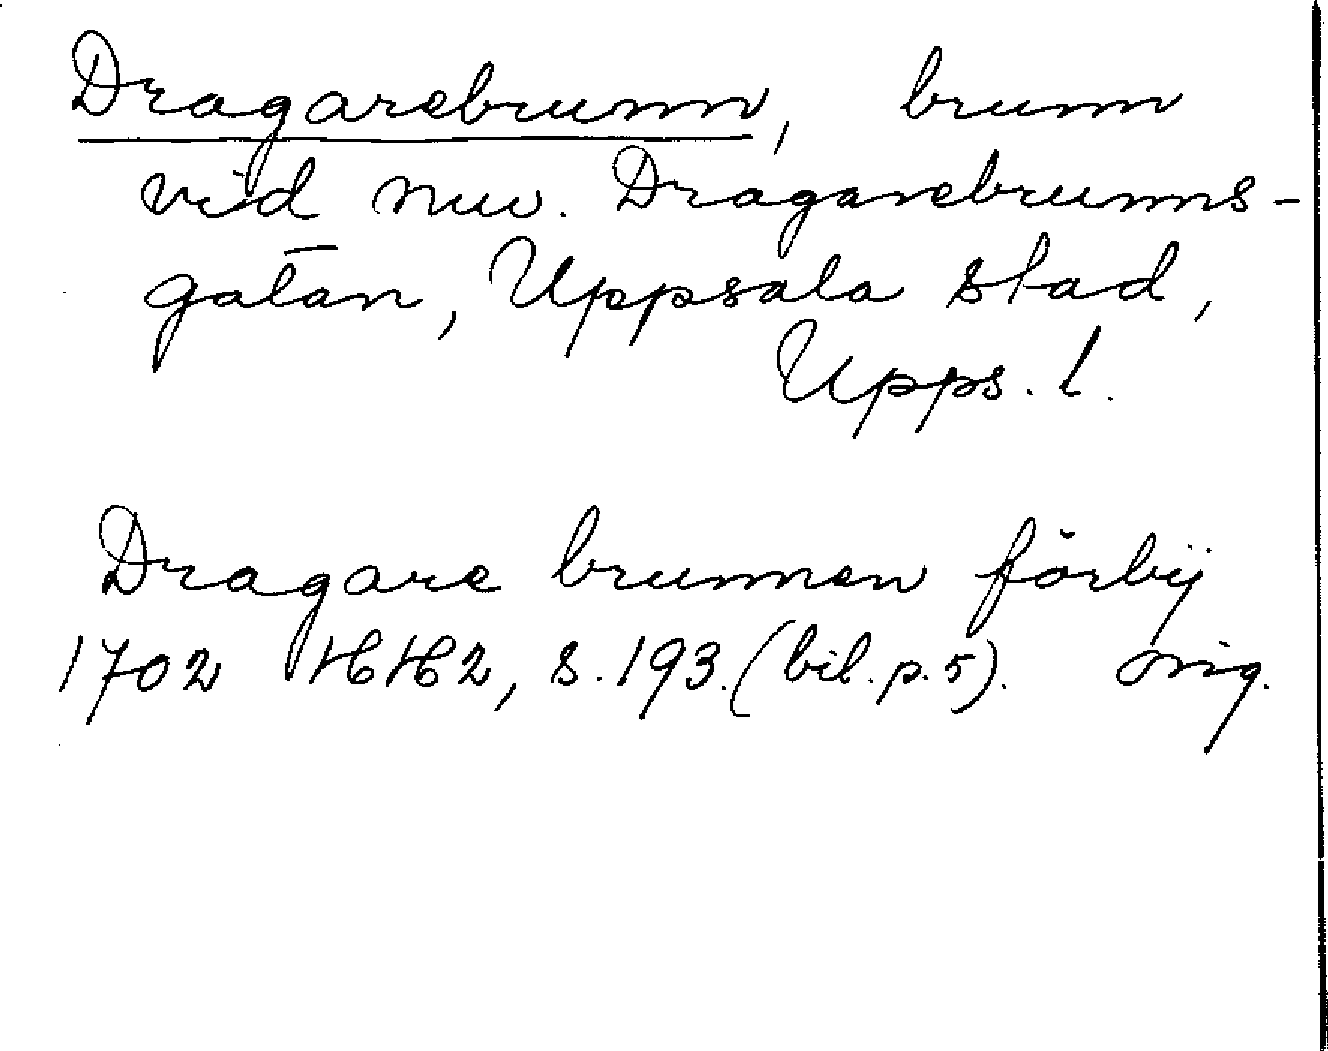 Dragarebrunn, brunn
vid nuv. Dragarebrunns-
gatan, Uppsala stad,
Upps. l.
Dragare brunnen förbij
1702 HH2, s. 193. (bil. p. 5). orig.